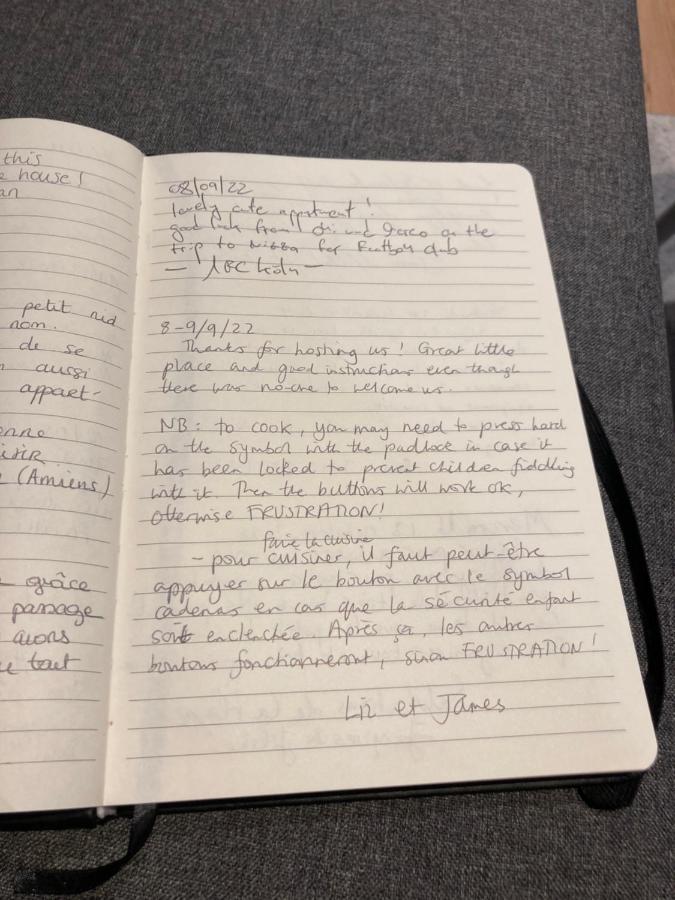 this
house!
an
petit nid
nom.
de se
aussi
appart-
(Amiens)
grâce
passage
avons
tout
08/09/22
lovely cute appartment!
good luck from and on the
trip to for Football club
8-9/9/22
Thanks for hosting us! Great little
place and good instructions even though
there was no-one to welcome us.
NB: to cook, you may need to press hard
on the symbol with the padlock in case it
has been locked to prevent children fiddling
with it. Then the buttons will work ok,
otherwise FRUSTRATION!
faire la cuisine
- pour cuisiner, il faut peut-être
appuyer sur le bouton avec le symbol
cadenas en cas que la sécurité enfant
soit enclenchée. Après ça, les autres
boutons fonctionneront, sinon FRUSTRATION!
Liz et James